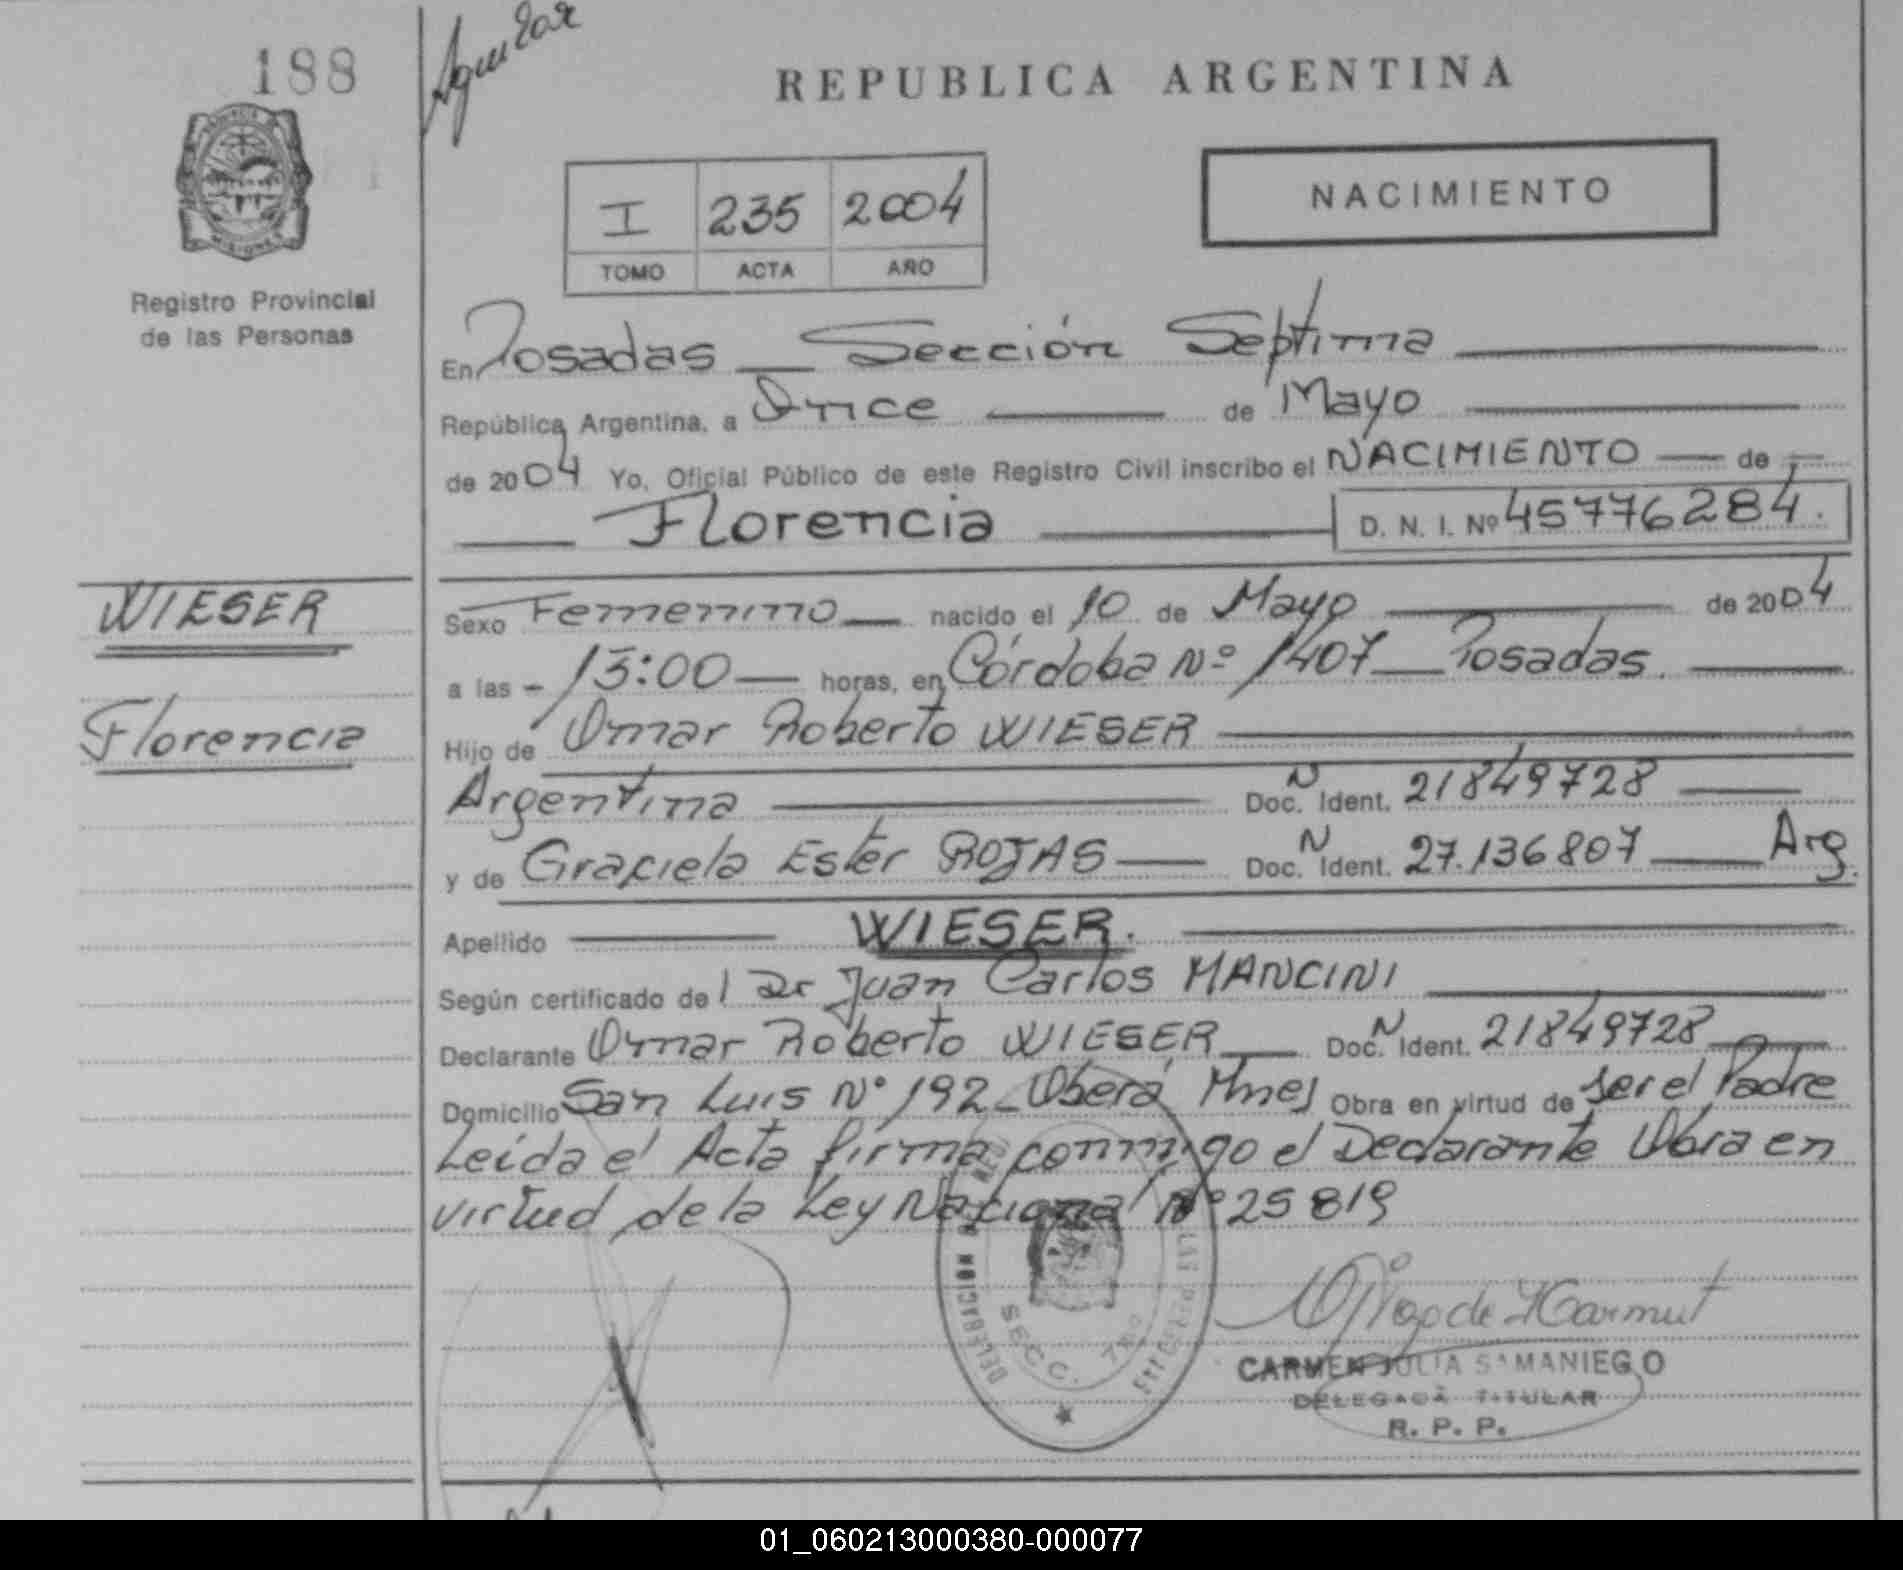 188
Aguilar
REPUBLICA ARGENTINA
NACIMIENTO
I 235 2004
TOMO ACTA AÑO
MISIONES
Registro Provincial
de las Personas
En Posadas Sección Septima
República Argentina, a Once de Mayo
de 2004 Yo, Oficial Público de este Registro Civil inscribo el NACIMIENTO de
Florencia D. N. I. Nº 45776284.
WIESER
Florencia
Sexo Femenino nacido el 10 de Mayo de 2004
a las 13:00 horas, en Córdoba Nº 1407 Posadas.
Hijo de Omar Roberto WIESER
Argentina Doc. N Ident. 21849728
y de Graciela Ester ROJAS Doc. N Ident. 27.136807 Arg.
Apellido WIESER.
Según certificado de l Dr Juan Carlos MANCINI
Declarante Omar Roberto WIESER Doc. N Ident. 21849728
Domicilio San Luis Nº 192 Oberá Mnes Obra en virtud de ser el Padre
Leida el Acta firma conmigo el Declarante Obra en
virtud de la Ley Nacional Nº 25819
DELEGACION
SECC. 7
CARMEN JULIA SAMANIEGO
DELEGADA TITULAR
R. P. P.
01_060213000380-000077